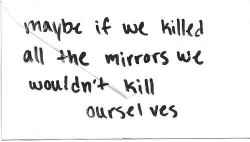 maybe if we killed
all the mirrors we
wouldn't kill
ourselves